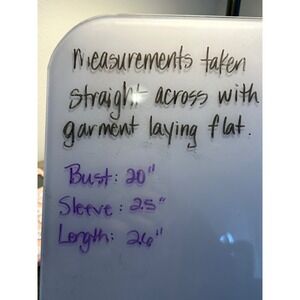 measurements taken
straight across with
garment laying flat.
Bust: 20"
Sleeve: 25"
Length: 26"